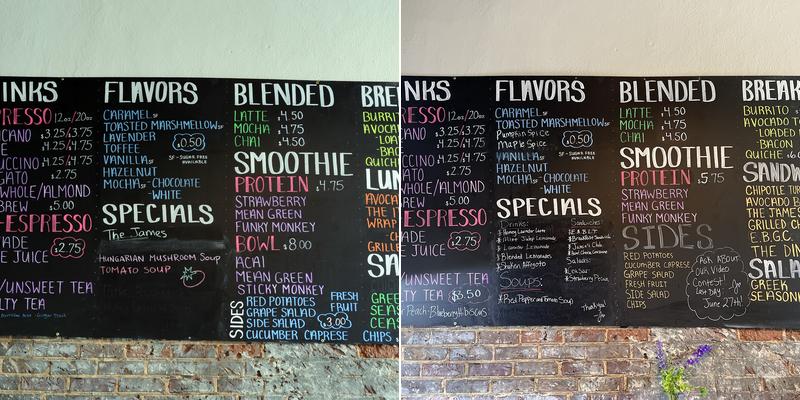 INKS
PRESSO 12oz/20oz
CANO $3.25/3.75
$4.25/4.75
$4.25/4.75
UCCINO $4.25/4.75
GATO $2.75
WHOLE/ALMOND
REW $5.00
-ESPRESSO
ADE
E JUICE $2.75
/UNSWEET TEA
LTY TEA
FLAVORS
CARAMEL SF
TOASTED MARSHMELLOW SF
LAVENDER
TOFFEE
$0.50
VANILLA SF
SF-SUGAR FREE
AVAILABLE
HAZELNUT
MOCHA SF-CHOCOLATE
-WHITE
SPECIALS
The James
HUNGARIAN MUSHROOM Soup
TOMATO SOUP
BLENDED
LATTE $4.50
MOCHA $4.75
CHAI $4.50
SMOOTHIE
PROTEIN $4.75
STRAWBERRY
MEAN GREEN
FUNKY MONKEY
BOWL $8.00
ACAI
MEAN GREEN
STICKY MONKEY
SIDES
RED POTATOES
GRAPE SALAD
SIDE SALAD
CUCUMBER CAPRESE
FRESH
FRUIT
$3.00
BRE
BURRI
AVOCA
LUN
AVOCA
THE IT
WRAP
CHIC
GRILLE
SA
GREE
SEAS
CEAS
CHIPS
NKS
ESSO 12oz/20oz
ANO $3.25/3.75
$4.25/4.75
$4.25/4.75
CCINO $4.25/4.75
ATO $2.75
WHOLE/ALMOND
EW $5.00
ESPRESSO
ADE
JUICE $2.75
/UNSWEET TEA
TY TEA $5.50
Peach·Blueberry Hibiscus
FLAVORS
CARAMEL SF
TOASTED MARSHMELLOW SF
Pumpkin Spice
Maple Spice
$0.50
VANILLA SF
SF-SUGAR FREE
AVAILABLE
HAZELNUT
MOCHA SF-CHOCOLATE
-WHITE
SPECIALS
Drinks:
Honey Lavender
Blended Lemonade
Shaken Affogato
Soups:
Red Pepper and Tomato Soup
Sandwiches:
Salads:
Caesar
Strawberry Pecan
Thank you!
BLENDED
LATTE $4.50
MOCHA $4.75
CHAI $4.50
SMOOTHIE
PROTEIN $5.75
STRAWBERRY
MEAN GREEN
FUNKY MONKEY
SIDES
RED POTATOES
CUCUMBER CAPRESE
GRAPE SALAD
FRESH FRUIT
SIDE SALAD
CHIPS
Ask About
Our Video
Contest!
Last Day
June 27th!
BREAK
BURRITO
AVOCADO TO
·LOADED
·BACON
QUICHE $6.0
SANDW
CHIPOTLE TUR
AVOCADO B
THE JAMES
GRILLED CH
E.B.G.C.
THE DIN
SALA
GREEK
SEASON